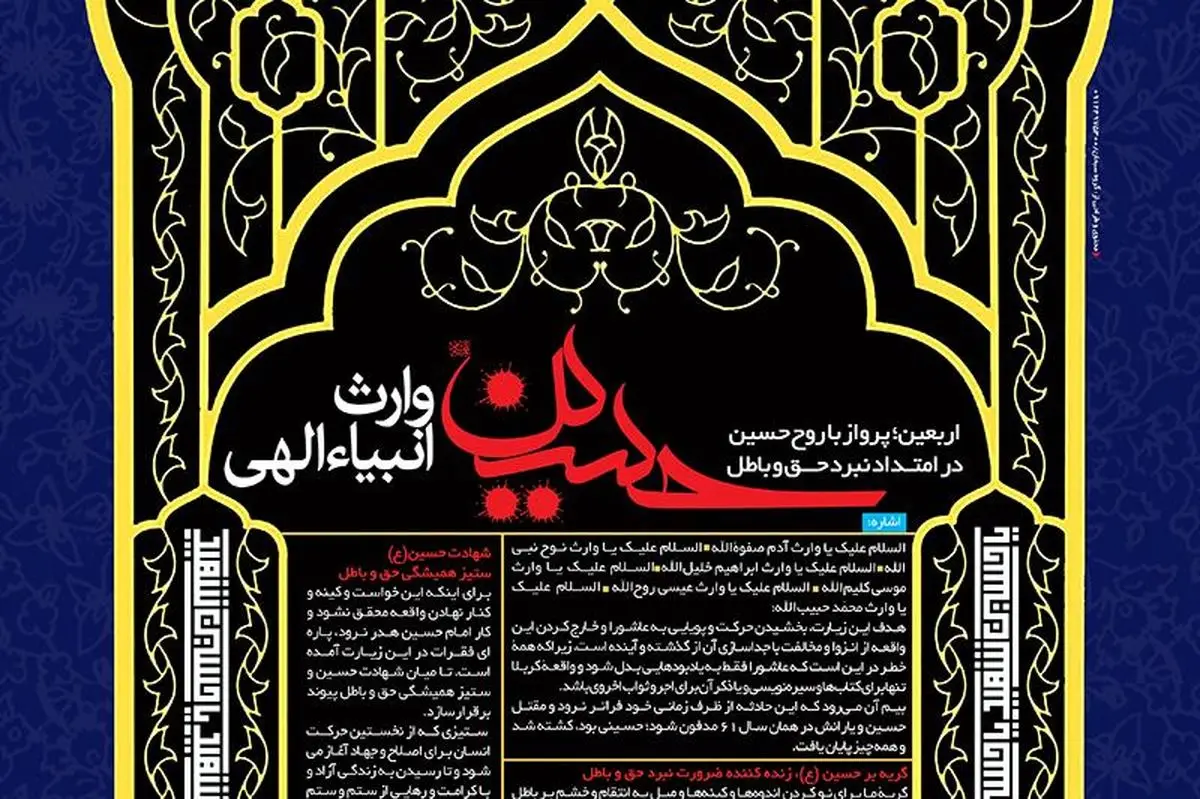 حسین
وارث
انبیاء الهی
اربعین؛ پرواز با روح حسین
در امتداد نبرد حق و باطل
اشاره:
السلام علیک یا وارث آدم صفوةالله ▪ السلام علیک یا وارث نوح نبی
الله ▪ السلام علیک یا وارث ابراهیم خلیل‌الله ▪ السلام علیک یا وارث
موسی کلیم‌الله ▪ السلام علیک یا وارث عیسی روح‌الله ▪ السلام علیک
یا وارث محمد حبیب‌الله:
هدف این زیارت، بخشیدن حرکت و پویایی به عاشورا و خارج کردن این
واقعه از انزوا و مخالفت با جداسازی آن از گذشته و آینده است، زیرا که همهٔ
خطر در این است که عاشورا فقط به یادبودهایی بدل شود و واقعه کربلا
تنها برای کتاب‌ها و سیره‌نویسی و یا ذکر آن برای اجر و ثواب اخروی باشد.
بیم آن می‌رود که این حادثه از ظرف زمانی خود فراتر نرود و مقتل
حسین و یارانش در همان سال ۶۱ مدفون شود؛ حسینی بود، کشته شد
و همه چیز پایان یافت.
گریه بر حسین (ع)، زنده کننده ضرورت نبرد حق و باطل
گریه‌ها برای نو کردن اندوه‌ها و کینه‌ها و میل به انتقام و خشم بر باطل
شهادت حسین(ع)
ستیز همیشگی حق و باطل
برای اینکه این خواست و کینه و
کنار نهادن واقعه محقق نشود و
کار امام حسین هدر نرود، پاره
ای فقرات در این زیارت آمده
است. تا میان شهادت حسین و
ستیز همیشگی حق و باطل پیوند
برقرار سازد.
ستیزی که از نخستین حرکت
انسان برای اصلاح و جهاد آغاز می
شود و تا رسیدن به زندگی آزاد و
با کرامت و رهایی از ستم و ستم